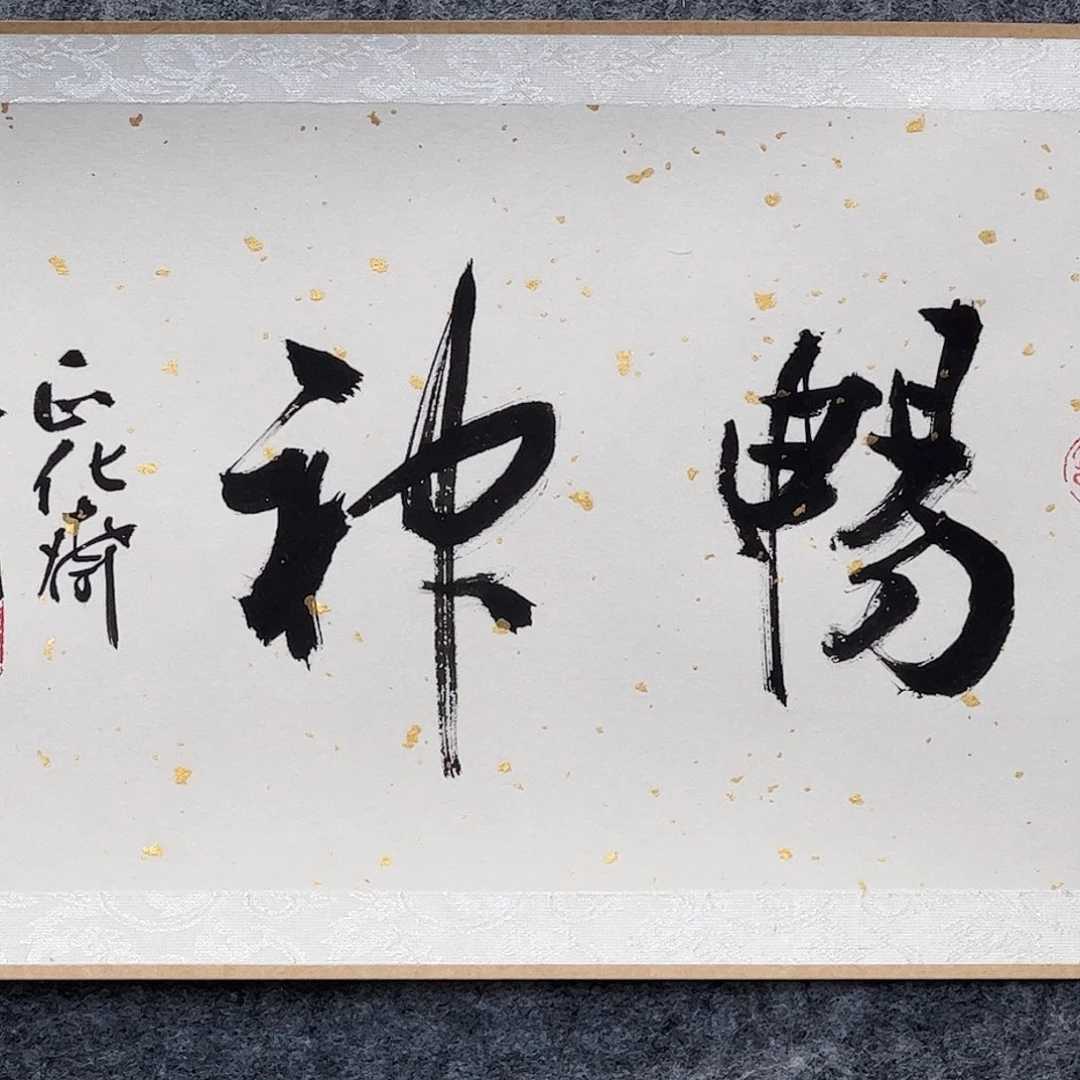 暢神
正化